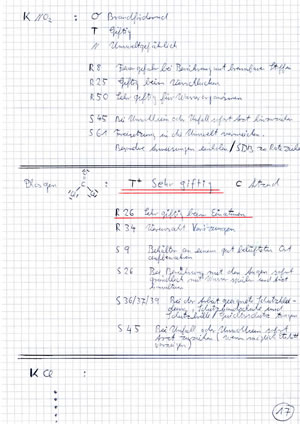 KNO₂ : O Brandfördernd
T Giftig
N Umweltgefährlich
R 8 Feuergefahr bei Berührung mit brennbaren Stoffen
R 25 Giftig beim Verschlucken
R 50 Sehr giftig für Wasserorganismen
S 45 Bei Unwohlsein oder Unfall sofort Arzt hinzuziehen
S 61 Freisetzung in die Umwelt vermeiden.
Besondere Anweisungen einholen / SDB zu Rate ziehen
Phosgen : T+ Sehr giftig C Ätzend
R 26 Sehr giftig beim Einatmen
R 34 Verursacht Verätzungen
S 9 Behälter an einem gut belüfteten Ort
aufbewahren
S 26 Bei Berührung mit den Augen sofort
mit Wasser spülen und Arzt
konsultieren
S 36/37/39 Bei der Arbeit geeignete
Schutzhandschuhe und
Schutzbrille / Gesichtsschutz tragen
S 45 Bei Unfall oder Unwohlsein sofort
Arzt zuziehen (wenn möglich
vorzeigen)
KCl :
17